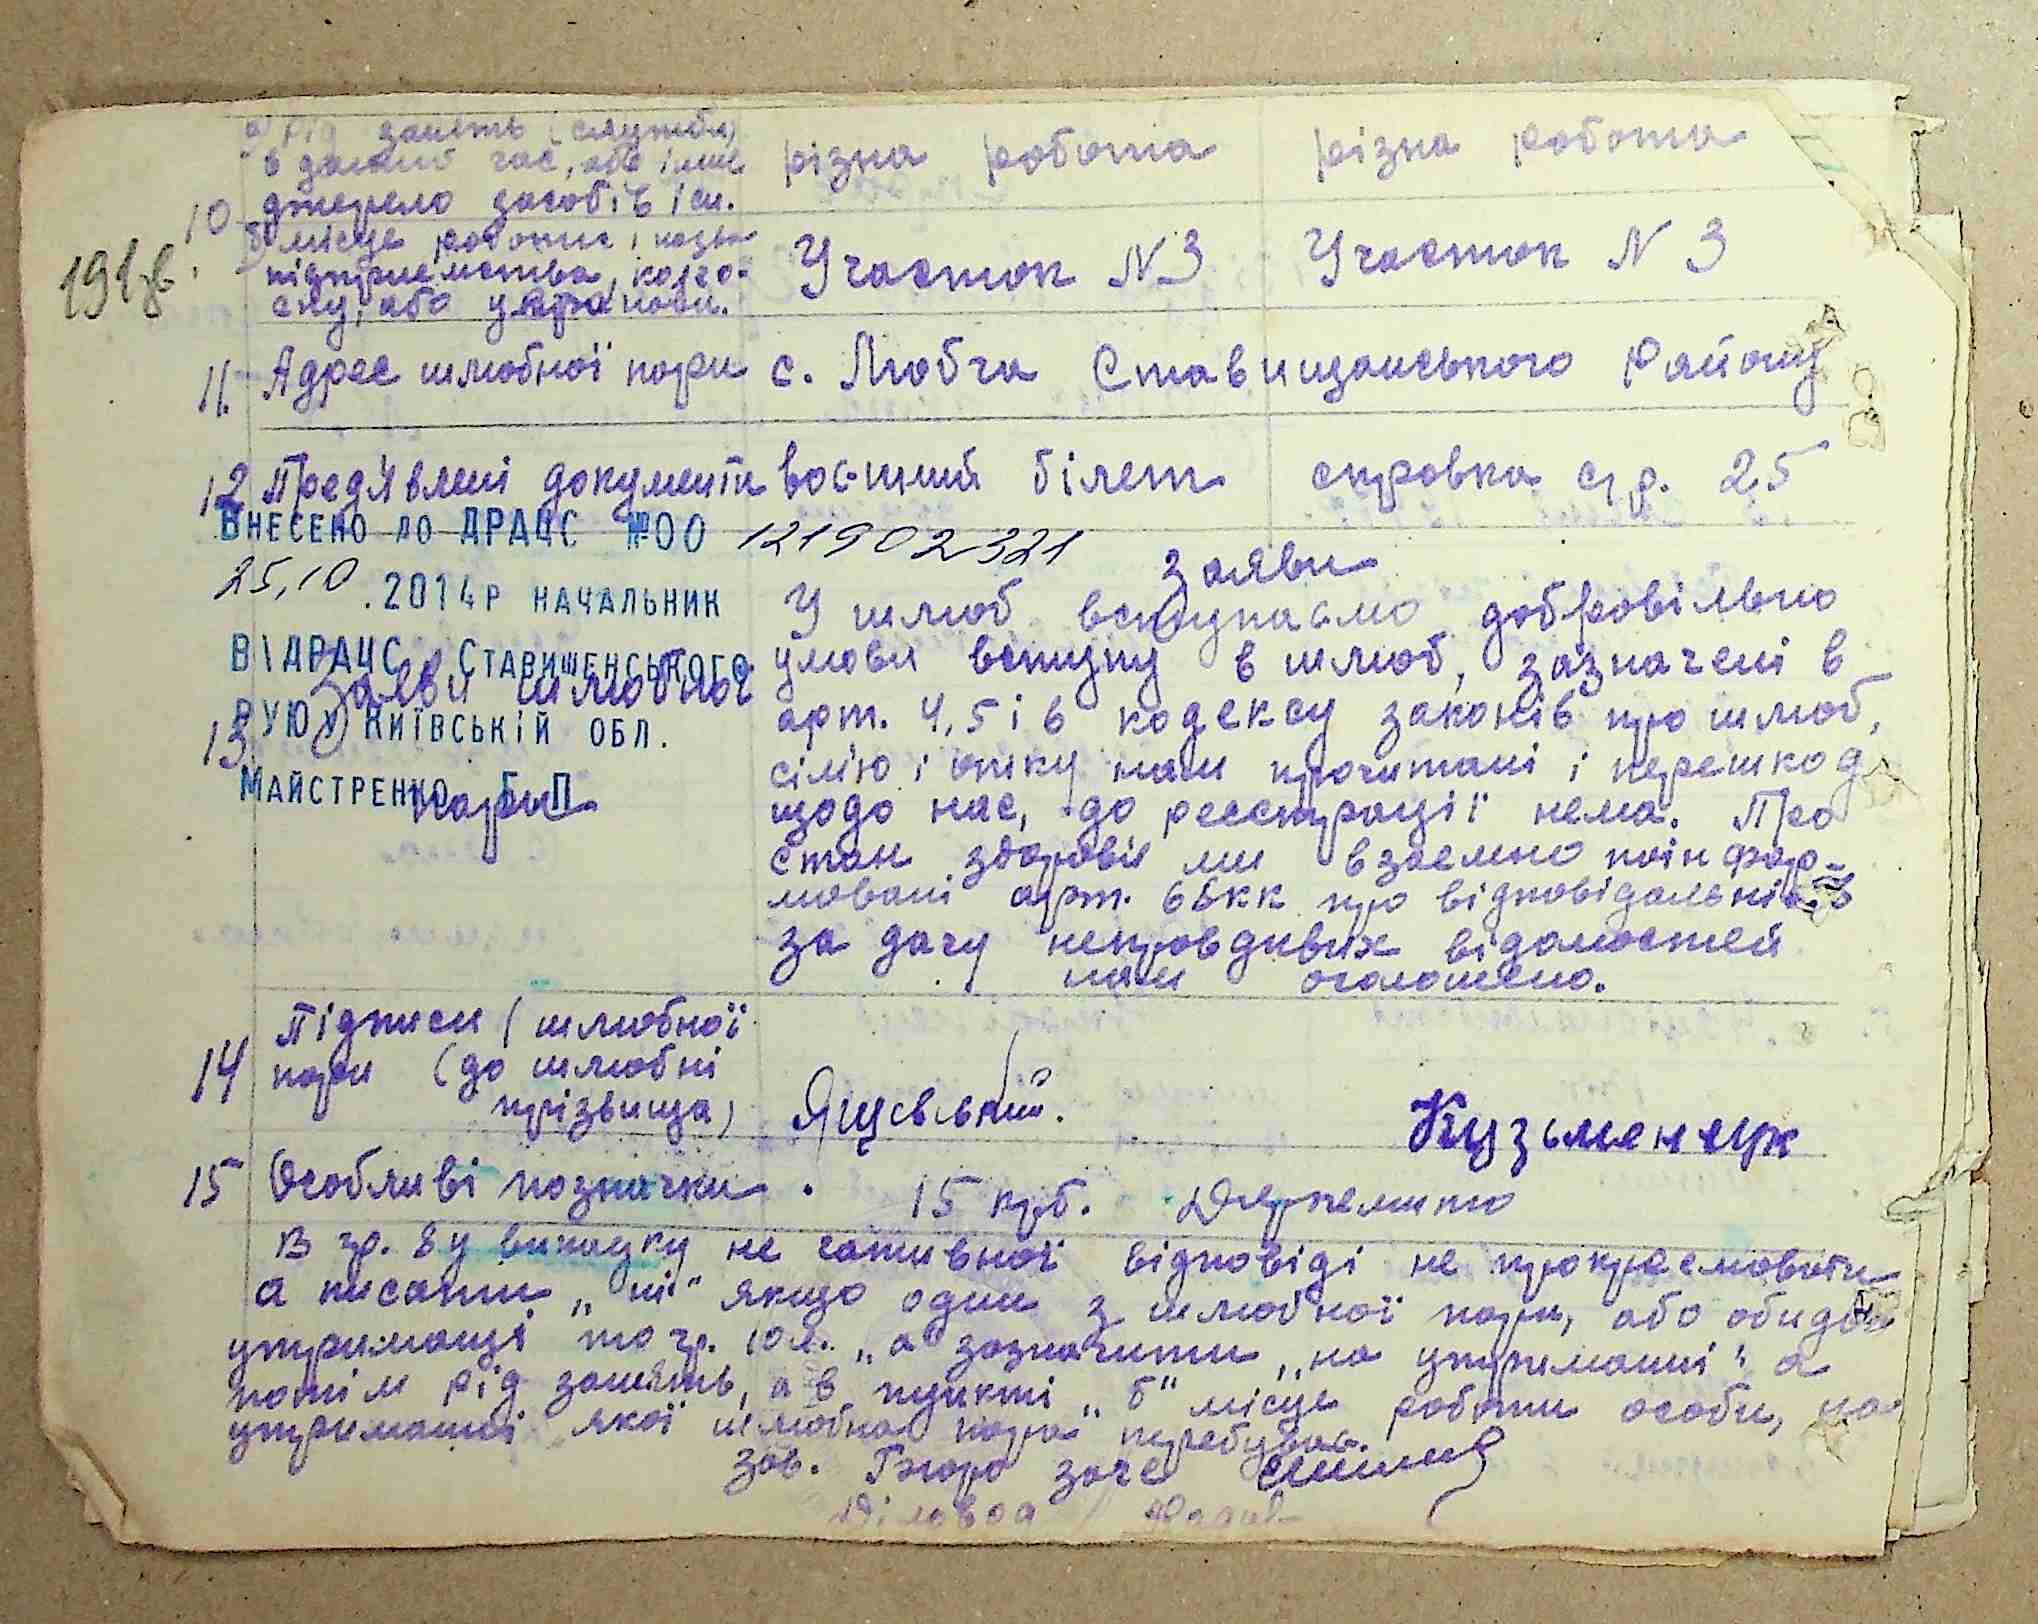 а) Рід занять (служби) різна робота різна робота
в даний час, або інше
10 джерело засобів існ.
191зв. б) місце роботи і назва Участок N 3 Участок N 3
підприємства, колго-
спу, або установи.
11. Адрес шлюбної пари с. Любча Ставищанського району
12 Пред'явлені документи воєнний білет справка стр. 25
Внесено до ДРАЦС №00 121902321
25.10.2014р начальник
ВІДРАЦС Ставищенського
РУЮ у Київській обл.
Майстренко Б П
13 Заяви шлюбної
пари
Заяви
У шлюб вступаємо добровільно
умови вступу в шлюб, зазначені в
арт. 4, 5 і 6 кодексу законів про шлюб,
сім'ю і опіку нам прочитані і перешкод
щодо нас, до реєстрації нема. Про
стан здоров'я ми взаємно поінфор-
мовані арт. 66кк про відповідальність
за дачу неправдивих відомостей
нам оголошено.
14 Підписи (шлюбної
пари (до шлюбні
прізвища) Яцевський. Кузьменчук
15 Особливі позначки. 15 крб. Держмито
В гр. 8 у випадку не гативної відповіді не прокреслювати
а писати „ні" якщо один з шлюбної пари, або обидва
утриманці то гр. 10 л. „а" зазначити „на утриманні" а
потім рід занять, а в пункті „б" місце роботи особи, на
утриманні якої шлюбна пара перебуває.
Зав. Бюро загс
Діловод